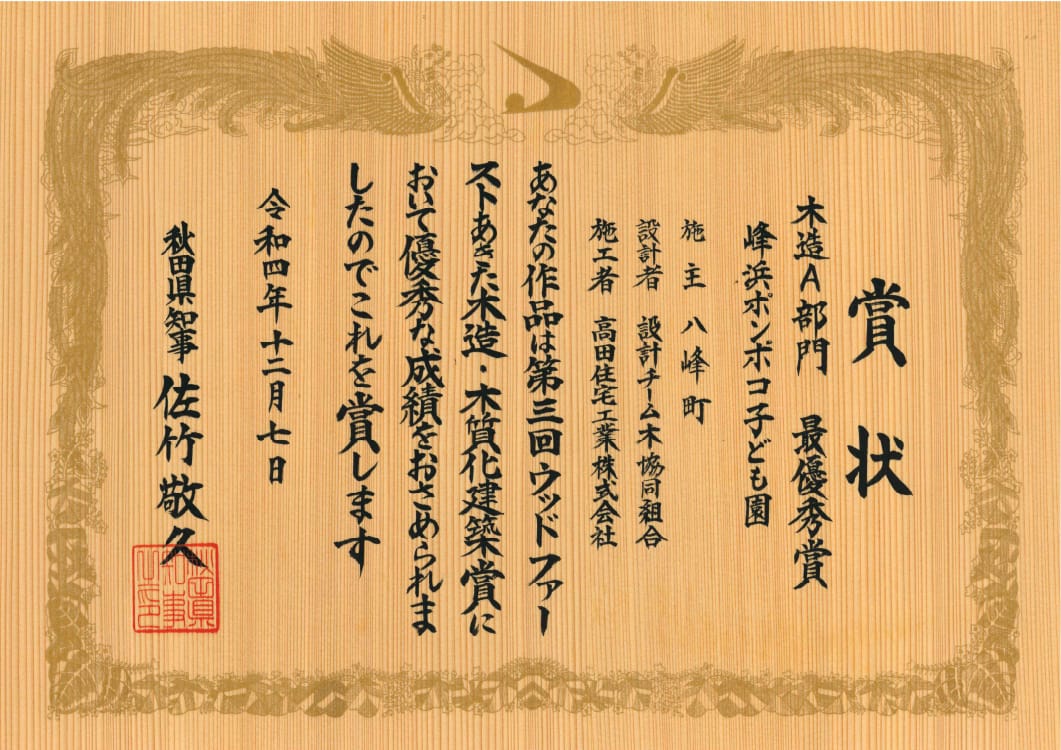 賞状
木造A部門 最優秀賞
峰浜ポンポコ子ども園
施主 八峰町
設計者 設計チーム木協同組合
施工者 高田住宅工業株式会社
あなたの作品は第三回ウッドファー
ストあきた木造・木質化建築賞に
おいて優秀な成績をおさめられま
したのでこれを賞します
令和四年十二月七日
秋田県知事 佐竹敬久